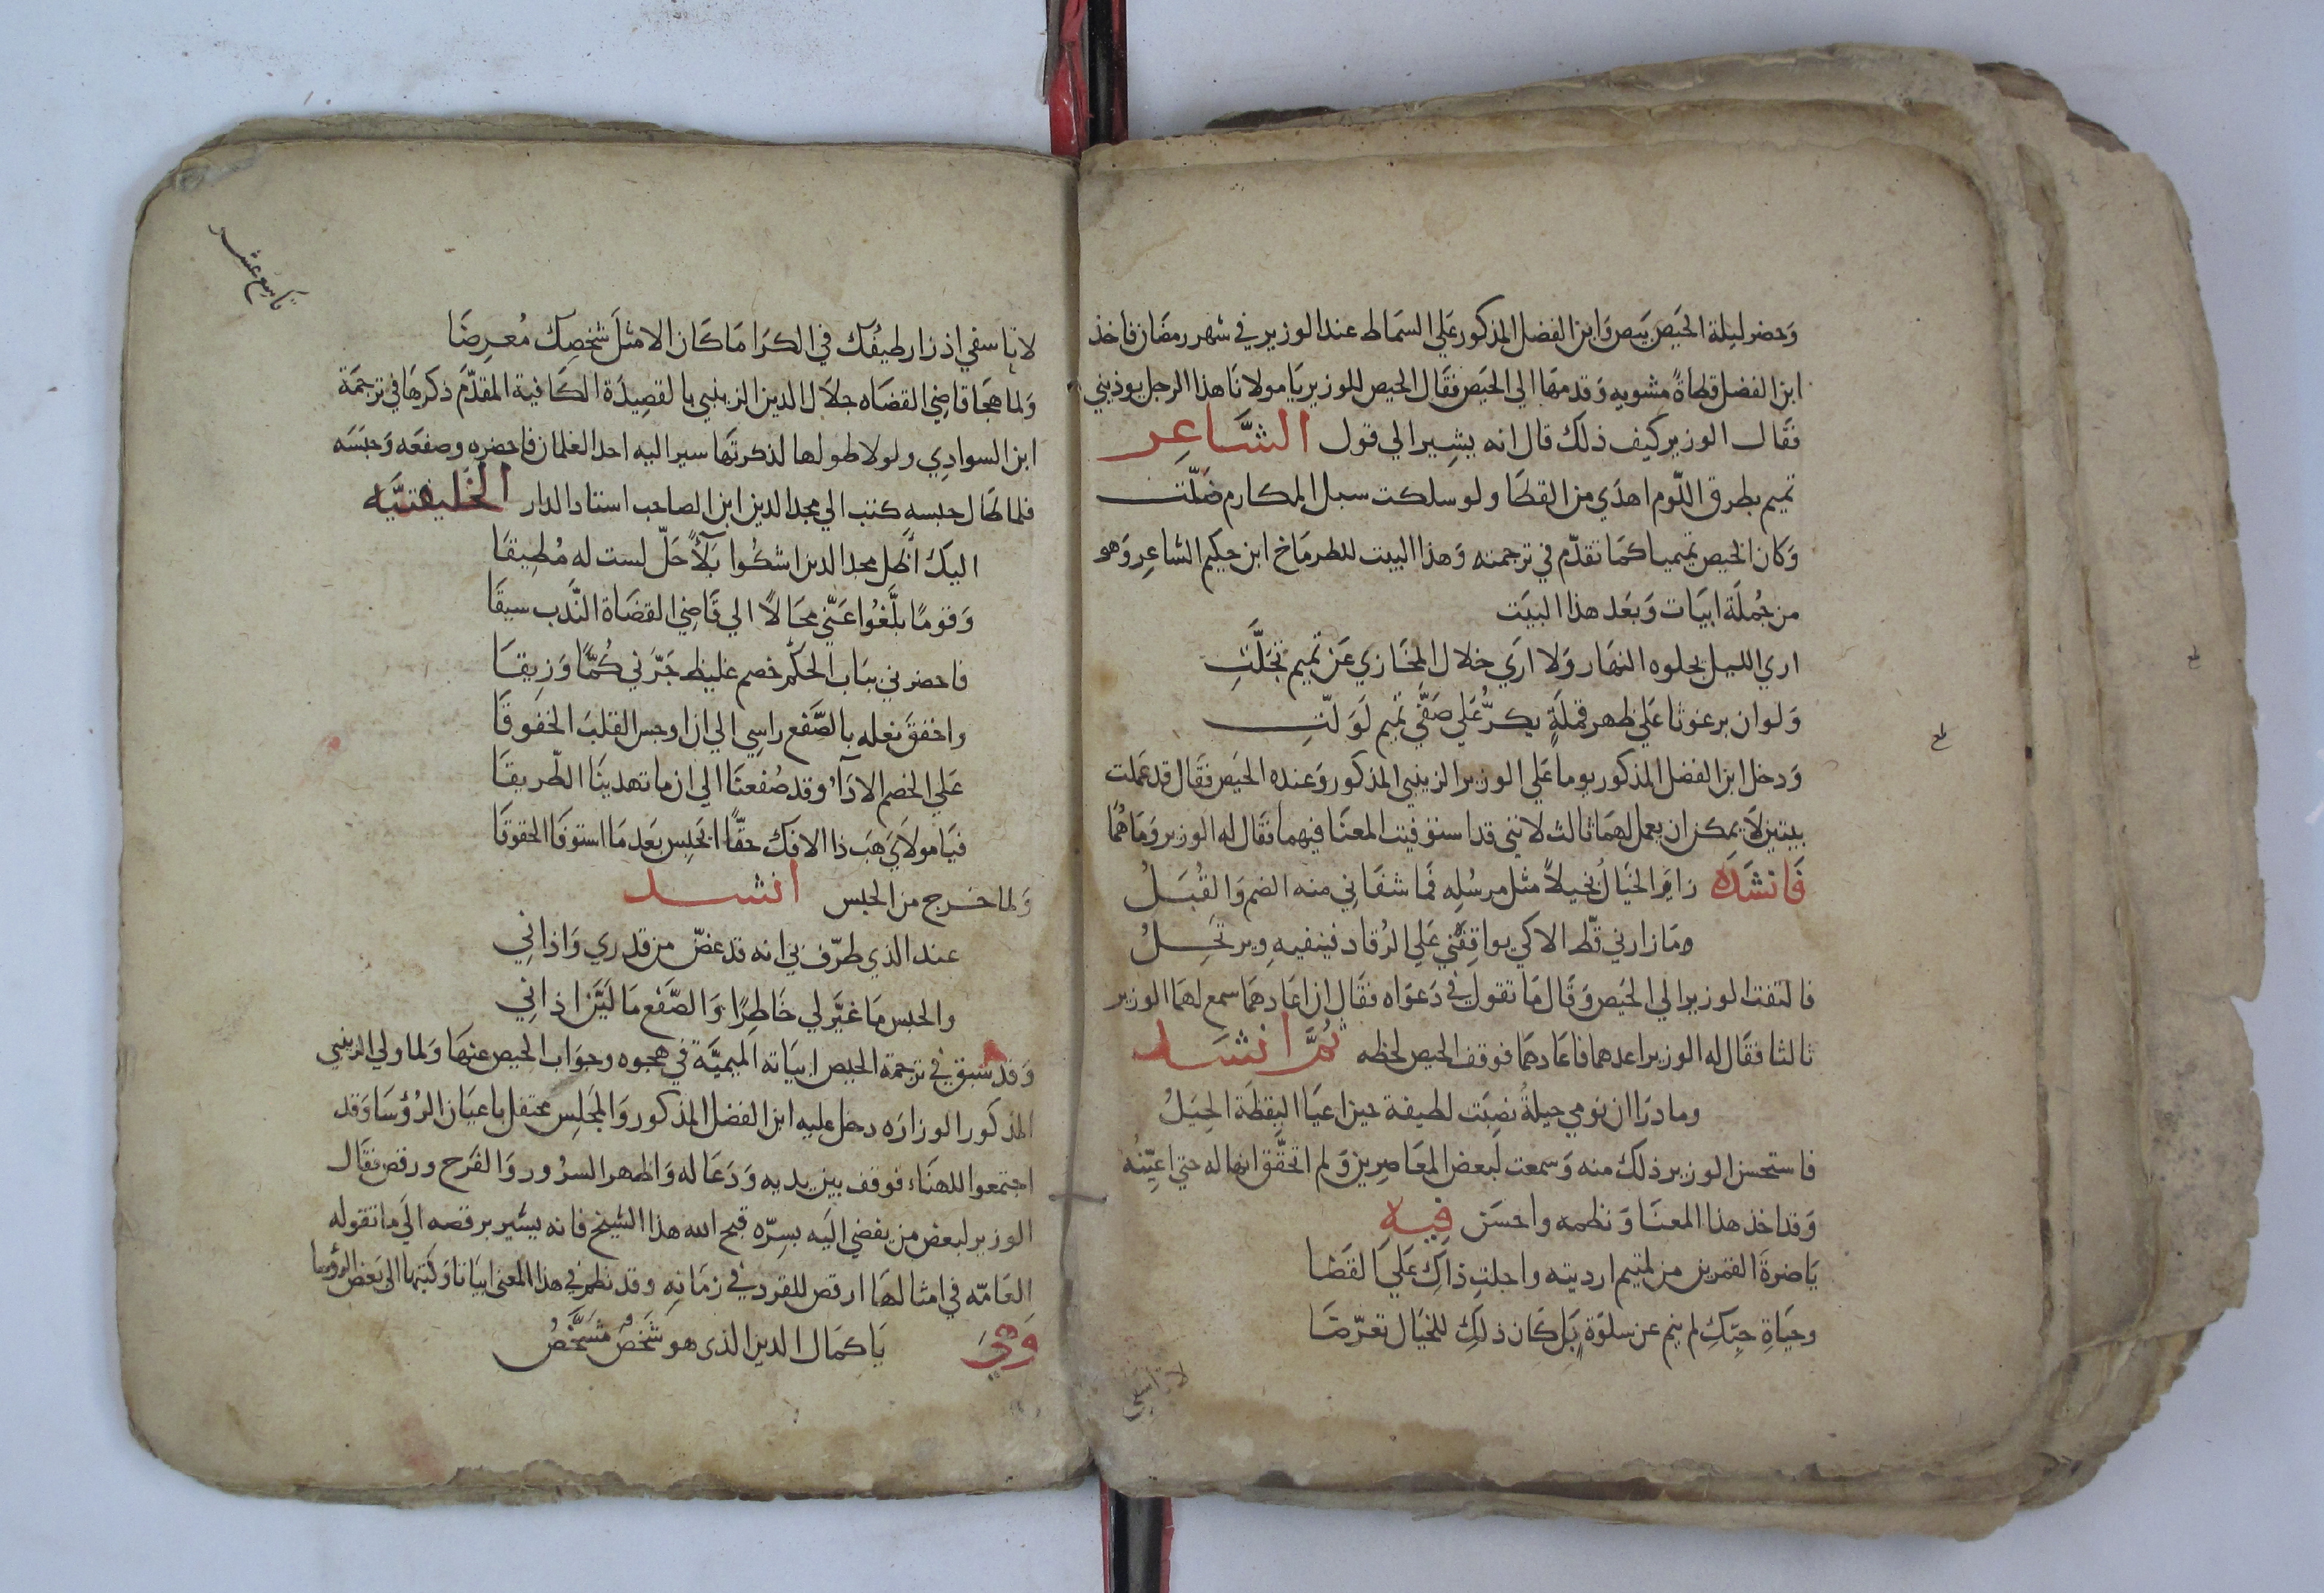 وَحضر ليلة الحَيص بَيص وَابن الفضل المذكور عَلي السمَاط عند الوزير في شهر رمضَان فاخذ
ابن الفضل قطاةً مشويه وَقدمهَا الي الحَيص فقَال الحيص للوزير يَا مولانَا هذا الرجل يوذيني
فقَال الوزير كيف ذلك قال انه يشِير الي قول الشَّاعِر
تميم بطرق اللّوم اهدَي من القطَا ولو سلكت سبل المكارم ضَلّت
وَكان الحيص تميميا كمَا تقدّم في ترجمته وَهذا البيت للطرمَاخ ابن حكيم الشاعِر وَهو
من جُملَة ابيَات وَبعَد هذا البيَت
اري الليل يجلوه النهَار وَلا ارَي خلال المخَازي عَن تميم تجَلَّتِ
وَلوان برغوثا عَلي ظهر قملَةٍ يكرُّ عَلي صَفَّي تَميم لَوَلّتِ
وَدخل ابن الفضل المذكور يوما عَلي الوزير الزينبي المذكور وَعنده الحَيَص فقَال قد عَملت
بيتين لاَ يمكن ان يعمل لهمَا ثالث لانني قد استوفيت المعنَا فيهما فقَال له الوزير وَمَا هُمَا
فَانشَدَه زارَ الخيَالُ نحيلاً مثل مرسُله فمَا شفَاني منه الضم وَالقُبَلُ
ومَا زارني قطّ الا كي يواقِفني عَلي الرُقاد فينفيهِ ويرتحِلُ
فالتفت الوزير الي الحَيَص وَقَال مَا تقول في دَعوَاه فقَال ان اعَادهمَا سمع لهمَا الوزير
ثالثا فقَال له الوزير اعدهما فاعَادهمَا فوقف الحيص لحظه ثُمَّ انشَد
وما درَا ان نومي حيلةُ نصِبَت لطيفة حين اعيَا اليقظَة الحِيَلُ
فاستحسن الوزير ذلك منه وَسمعت لبعض المعَاصِرين وَلم اتحقَّق انها له حتي اعيّنهُ
وَقد اخذ هذا المعنَا وَنظمه واحسَن فِيهِ
يَا ضرةَ القمرين من لمتيم ارديته واحلتِ ذاكِ عَلي القَضَا
وحيَاةِ حبّكِ لم ينم عن سلوَةٍ بَل كَان ذلكِ للخيَال تعرّضَا
لا تاسفي
طح
تاسع عشر
لا تاسفي اذ زار طيفُك في الكرَا مَا كَان الا مثلَ شخصِك مُعرِضَا
وَلما هجَا قاضي القضَاه جلاَل الدين الزينبي بالقصِيدَة الكَافية المقدَّم ذكرهَا في ترجمَة
ابن السوادِي ولولا طولها لذكرتهَا سير اليه احد الغلمان فاحضره وصفعَه وَحبَسَه
فلما طَال حبسهِ كتب الي مجد الدين ابن الصاحب استاد الدار الخليفتيَّه
اليكَ اظَل مجد الدين اشكُوا بَلآً حَلّ لست له مُطيقَا
وَقومًا بلَّغُوا عَنّي محَالاً الي قَاضِي القضَاة النَّدب سيقَا
فاحضرني ببَاب الحكَم خصم غليظ جَرّني كُمًّا وَزِيقَا
واخفقَ نعله بالصَّفع راسِي الي ان اوجس القلبَ الخفوقَا
عَلي الخصم الادآءُ وقد صُفعنَا الي ان ما تهدينَا الطّريقَا
فيَا مولاَيَ هَب ذا الافك حقًّا ايحَبس بعَد مَا استوفَا الحقوقَا
وَلما خرج من الحبس انشد
عند الذي طرّف بي انه قد غضّ من قدري وَاذاني
والحبس مَا غيَّر لي خَاطِرًا وَالصَّفع مَا لَيَّن اذاني
وَقد سَبق في ترجمة الحيص ابيَاته الميميَّة في هجوه وجوَاب الحيص عنهَا وَلما ولي الزينبي
المذكور الوزارَه دخل عليه ابن الفضل المذكور وَالمجَلِس محتفل باعيَان الرُؤسَا وَقد
اجتمعوا للهنَاء فوقف بين يديه وَدَعَا له وَاظهر السرُور وَالفرَح ورقص فقَال
الوزير لبعض من يفضي اليَه بسِرّه قبح الله هذا الشيخ فانه يشير برقصه الي مَا تقوله
العَامّه في امثالهَا ارقص للقرد في زمَانهِ وقد نظم في هذا المعني ابيَاتا وَكتبها الي بَعض الرؤسا
وَهيَ يَا كمَال الدين الذى هو شَخصٌ مشَخَّصُ